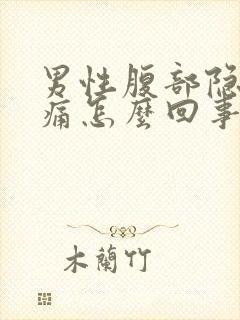 男性腹部隐
痛怎麽回事
木蘭竹